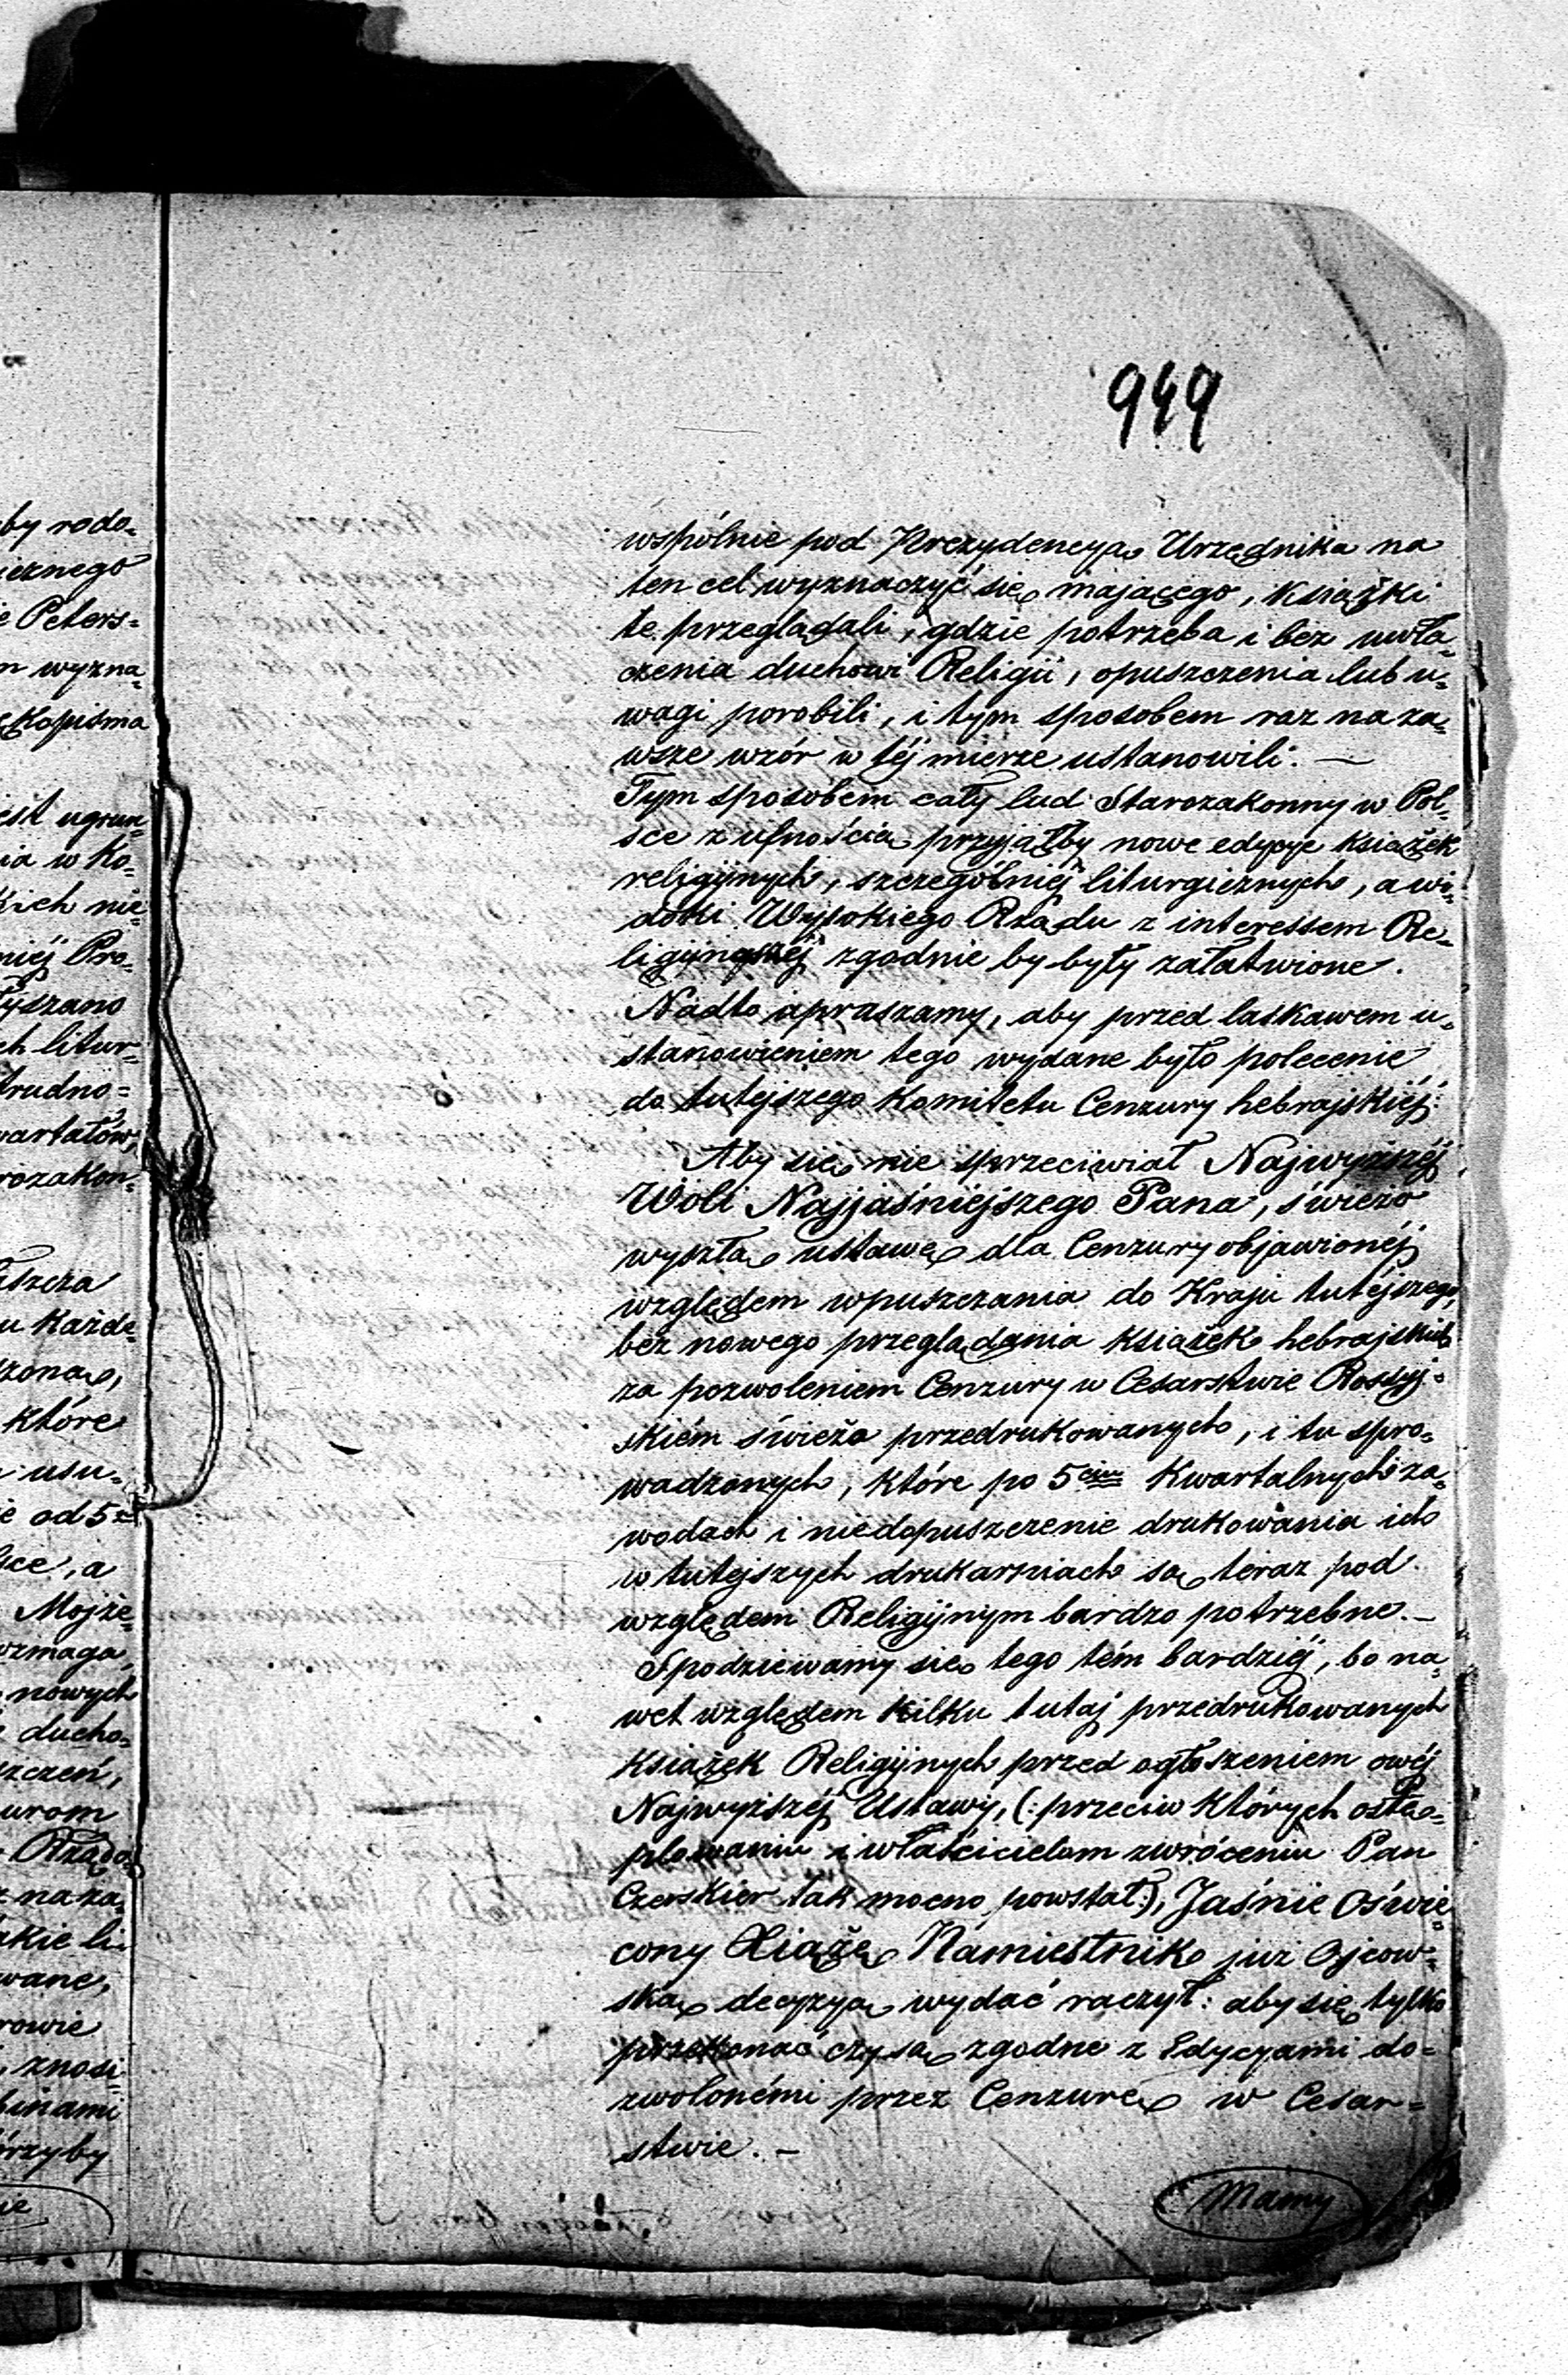 949
by rodo=
icznego
e Peters=
m wyzna=
ękopisma
jest ugrun=
ia w Ko=
kich nie=
niéj Pro=
łyszano
ch litur=
trudno=
wartałów,
rozakon=
aszcza
u każde=
zoną,
które
usu=
e od 5
sce, a
Mojże=
wzmaga,
nowych
ducho=
szczeń,
urom
Rządo=
na za=
akie li=
wane,
rowie
, znosi=
binami
órzyby
wspólnie pod Prezydencyą Urzędnika na
ten cel wyznaczyć się mającego, Książki
te przeglądali, gdzie potrzeba i bez uwła=
czenia duchowi Religii, opuszczenia lub u=
wagi porobili, i tym sposobem raz na za=
wsze wzór w téj mierze ustanowili. —
Tym sposobem cały lud Starozakonny w Pol=
sce z ufnością przyjąłby nowe edycye Książek
religijnych, szczególniéj liturgicznych, a wi=
doki Wysokiego Rządu z interessem Re=
ligijnym zgodnie by były załatwione.
Nadto upraszamy, aby przed łaskawem u=
stanowieniem tego wydane było polecenie
do tutejszego Komitetu Cenzury hebrajskiéj:
Aby się nie sprzeciwiał Najwyższéj
Woli Najjaśniejszego Pana, świeżo
wyszłą ustawą dla Cenzury objawionéj
względem wpuszczania do Kraju tutéjszego,
bez nowego przeglądania Książek hebrajskich
za pozwoleniem Cenzury w Cesarstwie Rossyj=
skiém świeżo przedrukowanych, i tu spro=
wadzonych, które po 5ciu Kwartalnych za=
wodach i niedopuszczenie drukowania ich
w tutejszych drukarniach są teraz pod
względem Religijnym bardzo potrzebne. —
Spodziewamy się tego tém bardziéj, bo na=
wet względem kilku tutaj przedrukowanych
Książek Religijnych przed ogłoszeniem owéj
Najwyższéj Ustawy, (: przeciw których ostę=
plowaniu i właścicielom zwróceniu Pan
Czerskier tak mocno powstał :), Jaśnie Oświe=
cony Xiążę Namiestnik już Ojcow=
ską decyzyą wydać raczył: aby się tylko
przekonać czy są zgodne z Edycyami do=
zwolonémi przez Cenzurę w Cesar=
stwie. —
Mamy